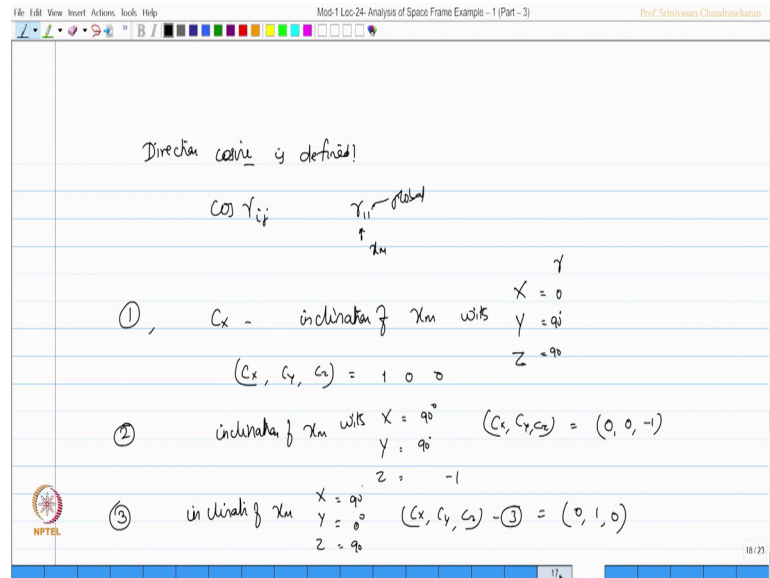 File Edit View Insert Actions Tools Help Mod-1 Lec-24- Analysis of Space Frame Example - 1 (Part - 3) Prof. Srinivasan Chandrasekaran
B I
Direction cosine is defined!
cos γij γ11 global
xm
γ
X = 0
① , Cx - inclination of xm with Y = 90°
Z = 90
(Cx, Cy, Cz) = 1 0 0
② inclination of xm with X = 90° (Cx, Cy, Cz) = (0, 0, -1)
Y = 90°
Z = -1
③ inclinati of xm X = 90° (Cx, Cy, Cz) - ③ = (0, 1, 0)
Y = 0°
Z = 90
NPTEL
18 / 23
17